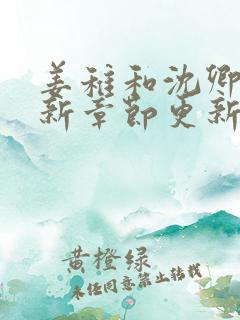 姜稚和沈卿
新章节更新
黄橙绿
未经同意禁止转载